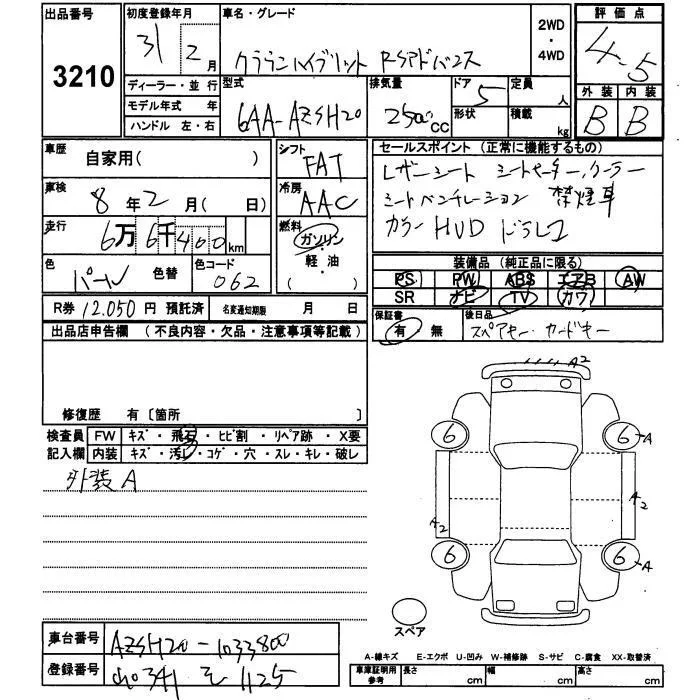 出品番号 3210
初度登録年月 31年 2月
車名・グレード クラウンハイブリット RSアドバンス
2WD・4WD
評価点 4.5
外装 B 内装 B
ディーラー・並行
モデル年式 年
ハンドル 左・右
型式 6AA-AZSH20
排気量 2500cc
ドア 5
形状
定員 人
積載 kg
車歴 自家用( )
シフト FAT
セールスポイント (正常に機能するもの)
レザーシート シートヒーター,クーラー
シートベンチレーション 禁煙車
カラーHUD ドラレコ
車検 8年2月( 日)
冷房 AAC
走行 6万6千460km
燃料 ガソリン・軽・油 ( )
色 パール 色替
色コード 062
装備品 (純正品に限る)
PS PW ABS エアB AW
SR ナビ TV カワ
R券 12,050円 預託済
名変通知期限 月 日
保証書 有 無
後日品 スペアキー・カードキー
出品店申告欄 (不良内容・欠品・注意事項等記載)
修復歴 有〔箇所
検査員記入欄
FW キズ・飛石・ヒビ割・リペア跡・X要
内装 キズ・汚れ・コゲ・穴・スレ・キレ・破レ
外装A
A2
6 6 A
A2 A2
6 6 A
スペア
車台番号 AZSH20-1033800
登録番号
A-線キズ E-エクボ U-凹み W-補修跡 S-サビ C-腐食 XX-取替済
車庫証明用参考 長さ cm 幅 cm 高さ cm